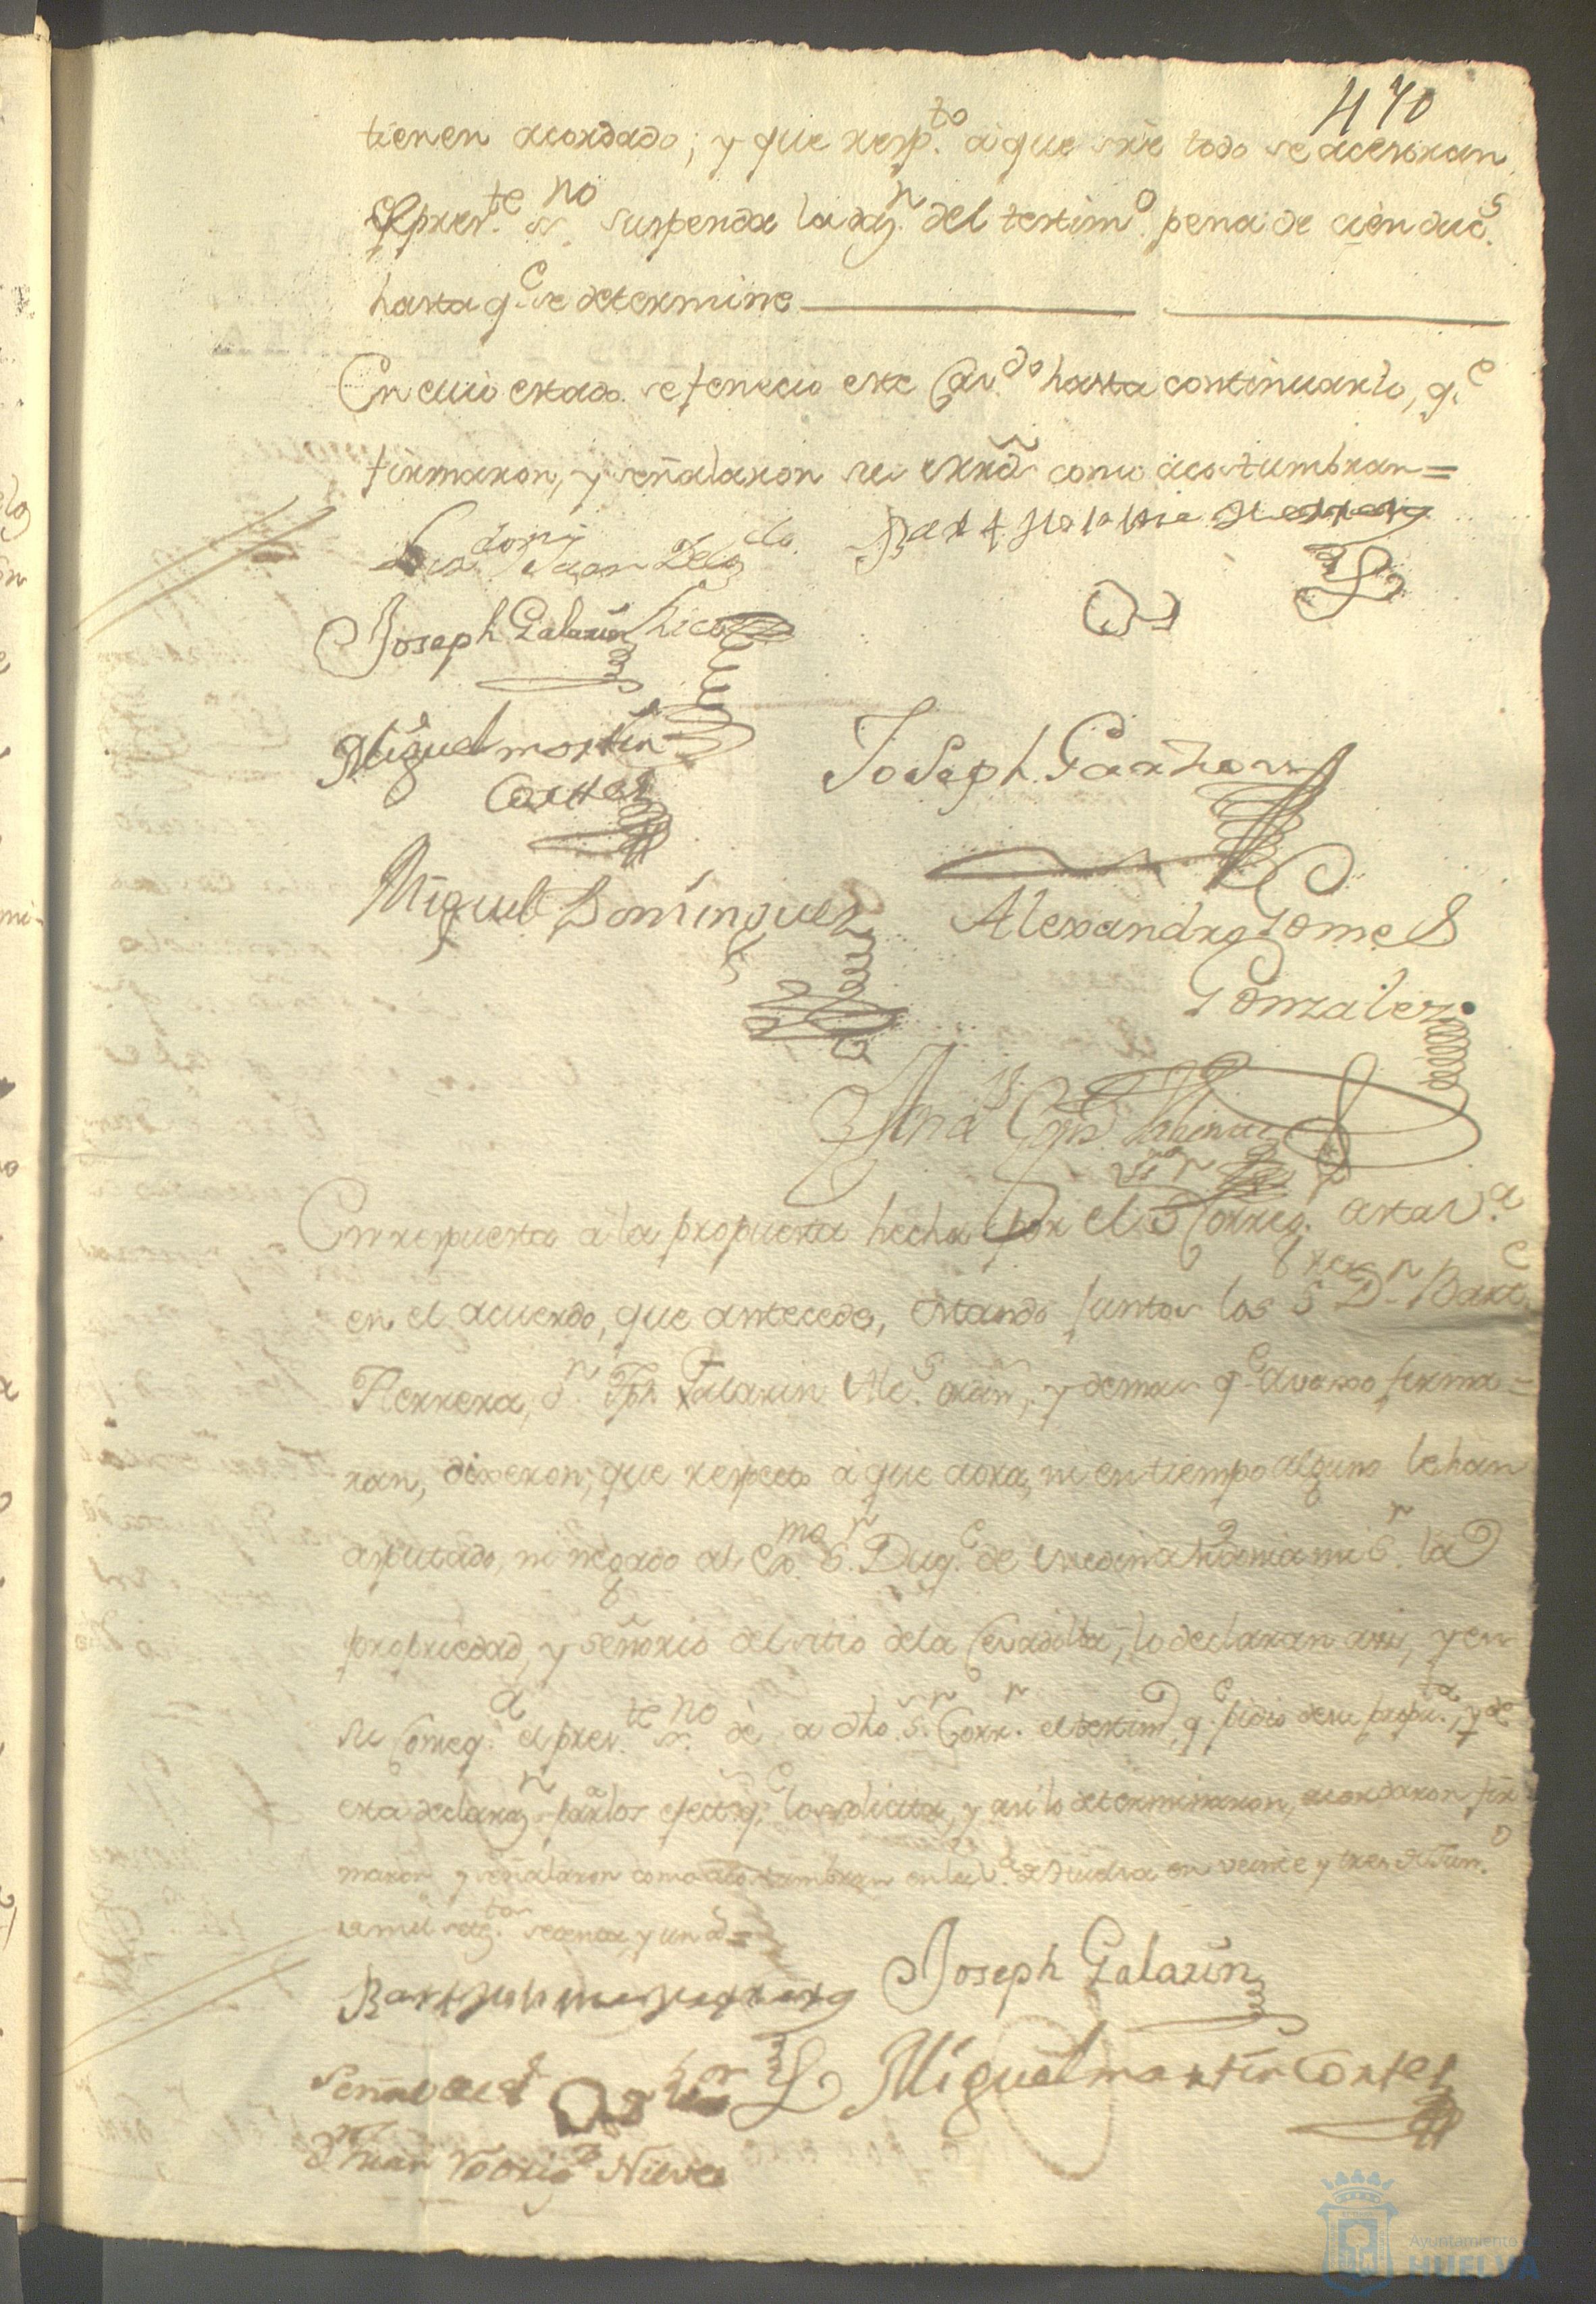 470
tienen acordado; y que resp.to à que sre todo se acesoran
el pres.te ss.no suspenda la azn. del testim.o pena de cien duc.s
hasta q.e se determine
En cuio estado se fenecio este Cav.do hasta continuarlo, q.e
firmaron, y señalaron sus mrds como acostumbran =
Liz.do don Juan Delg.do
Bartholome Herrera
Joseph Galarin Chico
Miguel martin
Cortes
Joseph Garzon
Miguel Dominguez
Alexandro Gomes
Gonzales
En respuesta a la propuesta hecha por el S.or Correg. a esta v.a
en el acuerdo, que antecede, estando juntos los S.res D.n Bart.e
Herrera, d.n Jph. Galarin Alc.s ordin., y demas q.e avaxo firma=
ran, dixeron; que respecto à que aora, ni en tiempo alguno le han
disputado, ni negado al Ex.mo S.r Duq.e de Medina Sidonia mi S.r la
propriedad, y señorio del sitio de la Cevadilla, lo declaran assi, y en
su Conseq.a el pres.te ss.no dè a dho S.r Corr.r el testim.o q.e pidio de su propu.ta, y de
esta declaraz.n para los efectos q.e los solicita, y assi lo determinaron, acordaron fir
maron y señalaron como acostumbran en la v.a de Huelva en veinte y tres de Jun.o
de mil setez.tos setenta y un a.s =
Bartholome Herrera
Joseph Galarin
Señal del S.or
Miguel martin Cortes
d.n Juan Rodrig.z Nieves
Ayuntamiento
HUELVA